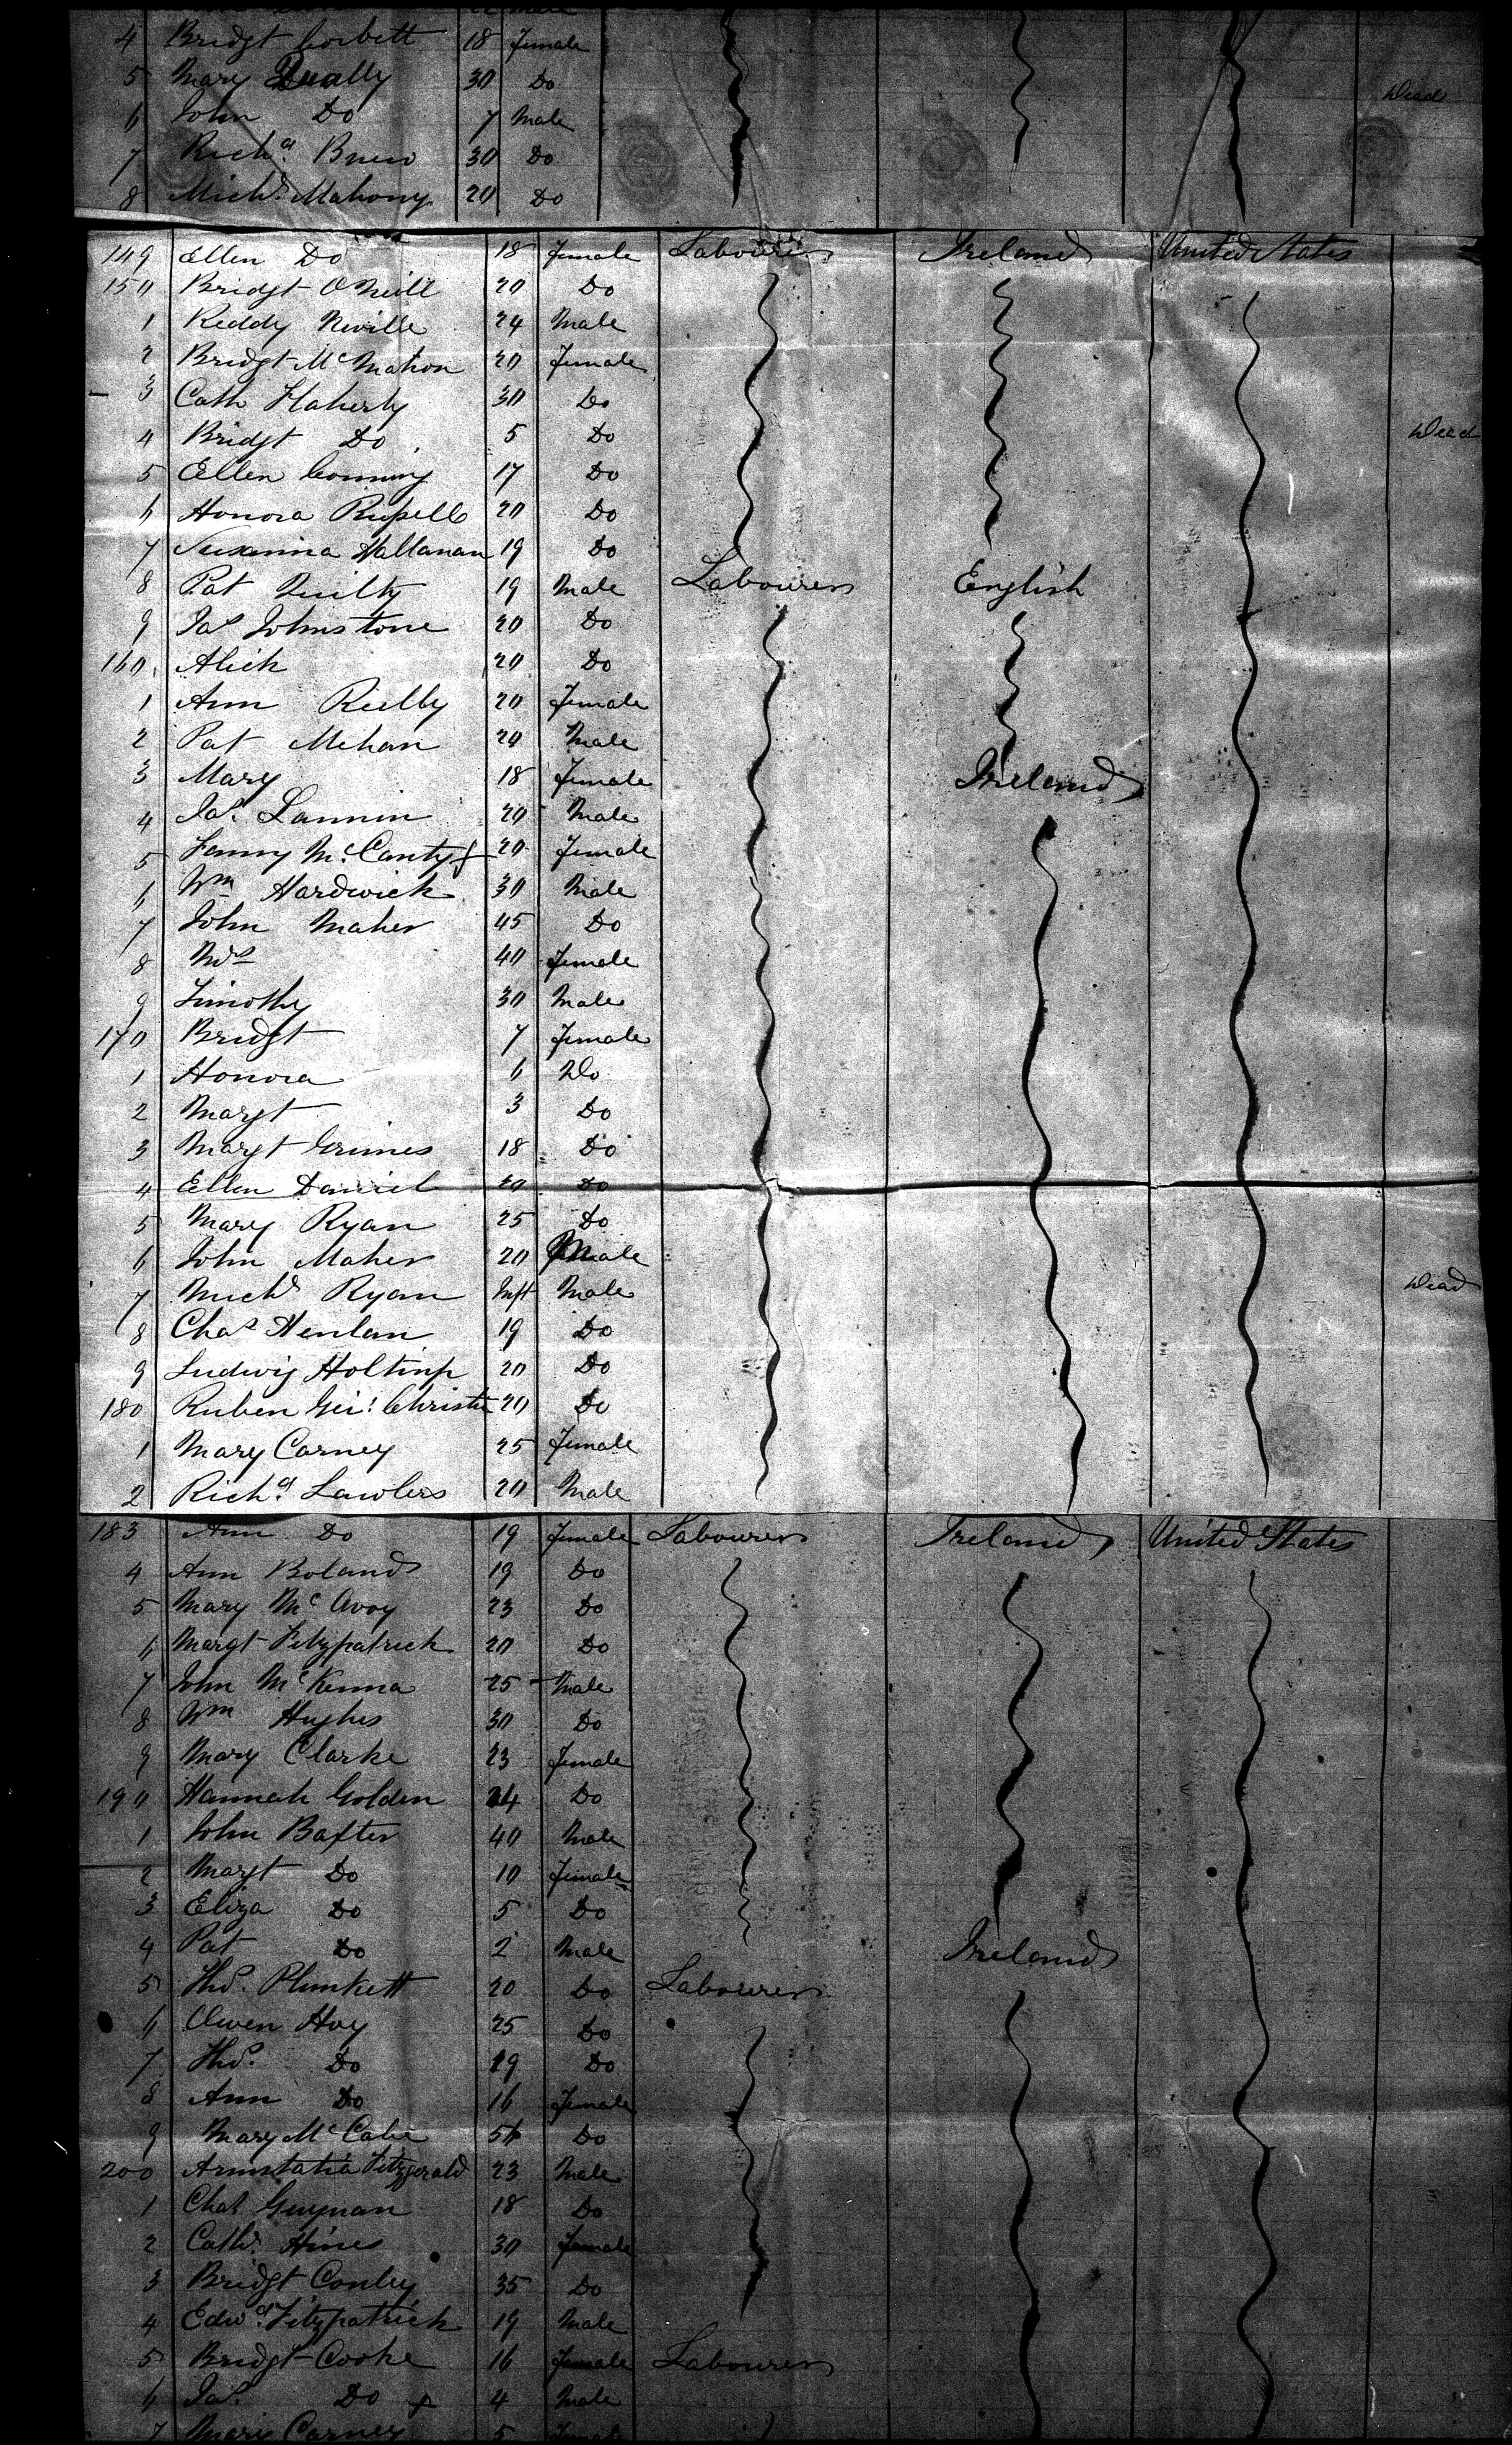 4 Bridgt Corbett 18 Female
5 Mary Dually 30 Do Dead
6 John Do 7 Male
7 Richd. 30 Do
8 Michl. Mahony 20 Do
149 Ellen Do 18 Female Labourers Ireland United States
150 Bridgt O Neill 20 Do
1 Reddy Neville 24 Male
2 Bridgt McMahon 20 Female
3 Cath Flaherty 30 Do
4 Bridgt Do 5 Do Dead
5 Ellen 17 Do
6 Honora Russell 20 Do
7 Susanna Hallanan 19 Do
8 Pat Quilty 19 Male Labourers English
9 Jas Johnstone 20 Do
160 Alick 20 Do
1 Ann Reilly 20 Female
2 Pat Mehan 24 Male
3 Mary 18 Female Ireland
4 Jas. Lannin 20 Male
5 Fanny Mc.Canty 20 Female
6 Wm Hardwick 30 Male
7 John Maher 45 Do
8 Mrs 40 Female
9 Timothy 30 Male
170 Bridgt 7 Female
1 Honora 6 Do
2 Margt 3 Do
3 Margt Grimes 18 Do
4 Ellen Daniel 20 Do
5 Mary Ryan 25 Do
6 John Maher 20 Male
7 Michl Ryan Inft Male Dead
8 Chas Henlan 19 Do
9 Ludwig 20 Do
180 Ruben Christie 20 Do
1 Mary Carney 25 Female
2 Richd. Lawlers 20 Male
183 Ann Do 19 Female Labourers Ireland United States
4 Ann Boland 19 Do
5 Mary McAvoy 23 Do
6 Margt Fitzpatrick 20 Do
7 John McKenna 25 Male
8 Wm Hughes 30 Do
9 Mary Clarke 23 Female
190 Hannah Golden 24 Do
1 John Baxter 40 Male
2 Margt Do 10 Female
3 Eliza Do 5 Do
4 Pat Do 2 Male Ireland
5 Thos. Plunkett 20 Do Labourers
6 Owen Hoy 25 Do
7 Thos. Do 19 Do
8 Ann Do 16 Female
9 Mary McCabe Do
200 Fitzgerald 23 Male
1 Chas 18 Do
2 Cath. Hines 30 Female
3 Bridgt Conley 35 Do
4 Edwd. Fitzpatrick 19 Male
5 Bridgt Cooke 16 Female Labourers
6 Jas. Do 4 Male
7 Mary Carney 5 Female